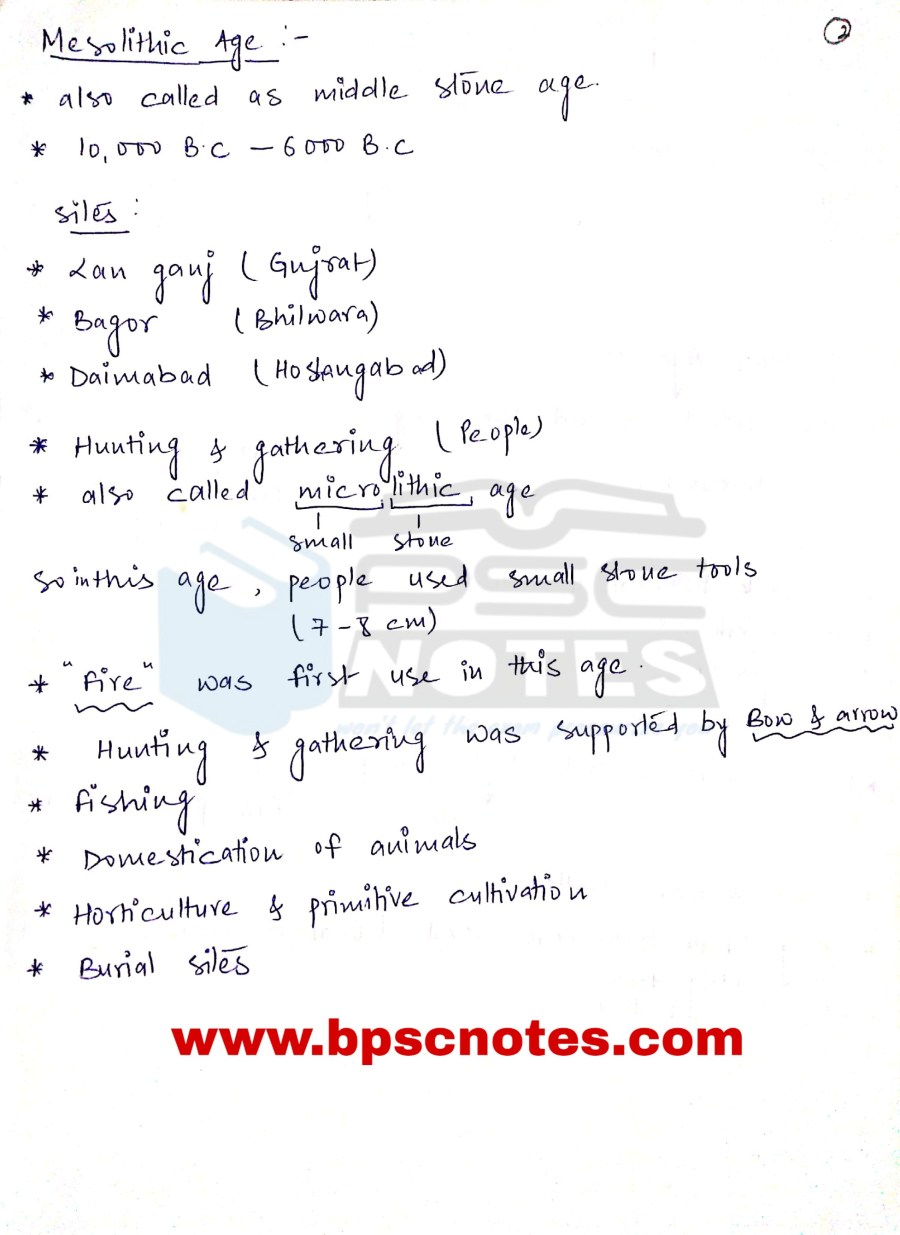 2
Mesolithic Age :-
* also called as middle stone age.
* 10,000 B.C – 6000 B.C
Sites :
* Lan ganj (Gujrat)
* Bagor (Bhilwara)
* Daimabad (Hoshangabad)
* Hunting & gathering (People)
* also called microlithic age
small stone
So in this age, people used small stone tools
(7-8 cm)
* "fire" was first use in this age.
* Hunting & gathering was supported by Bow & arrow
* fishing
* Domestication of animals
* Horticulture & primitive cultivation
* Burial sites
PSC
NOTES
www.bpscnotes.com